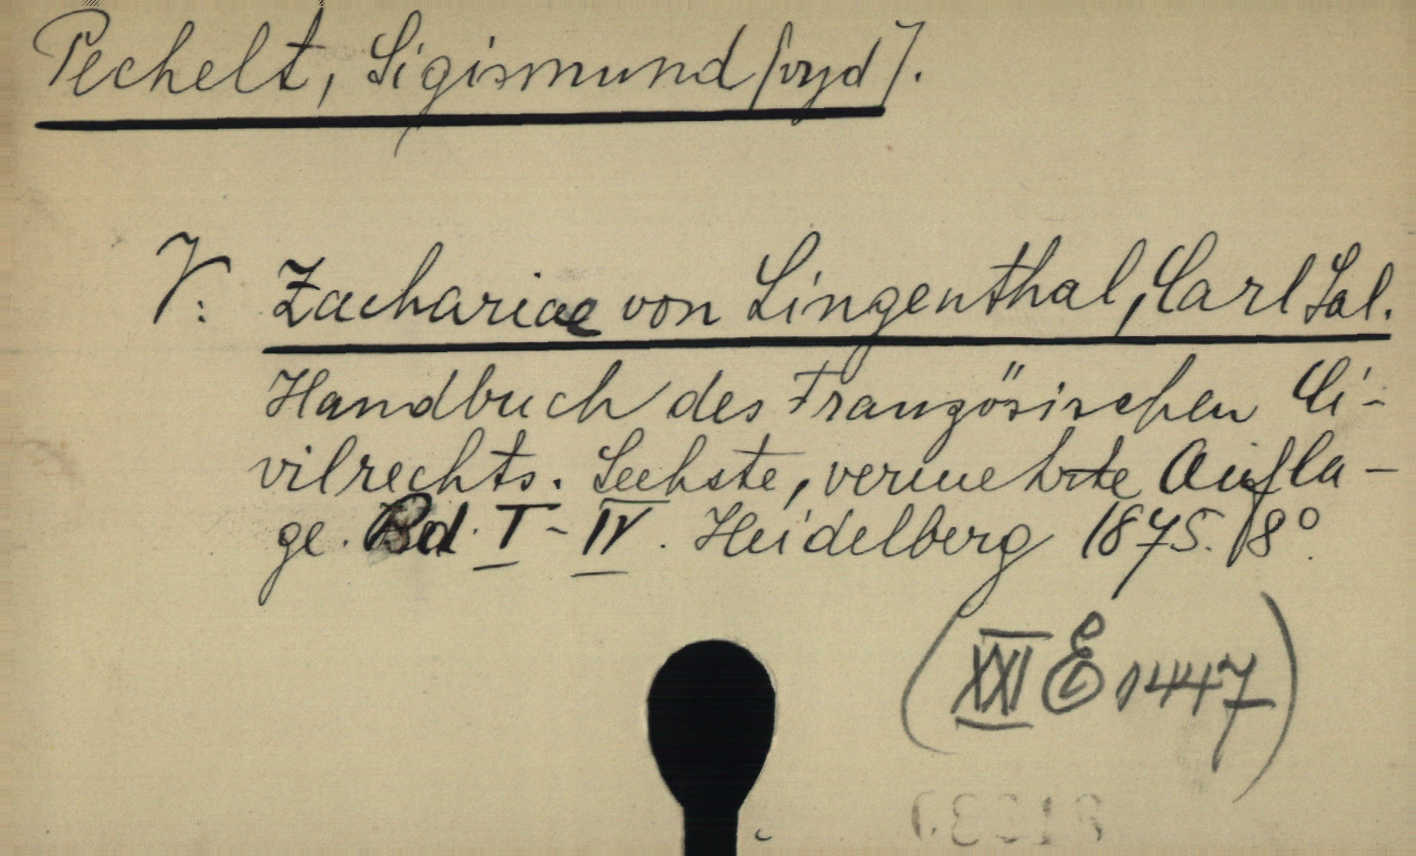 Pechelt, Sigismund [vyd].
V: Zachariae von Lingenthal, Carl Sal.
Handbuch des Französischen Ci-
vilrechts. Sechste, vermehrte Aufla-
ge. Bd. I - IV. Heidelberg 1875. 8°.
(XXI E 1447)